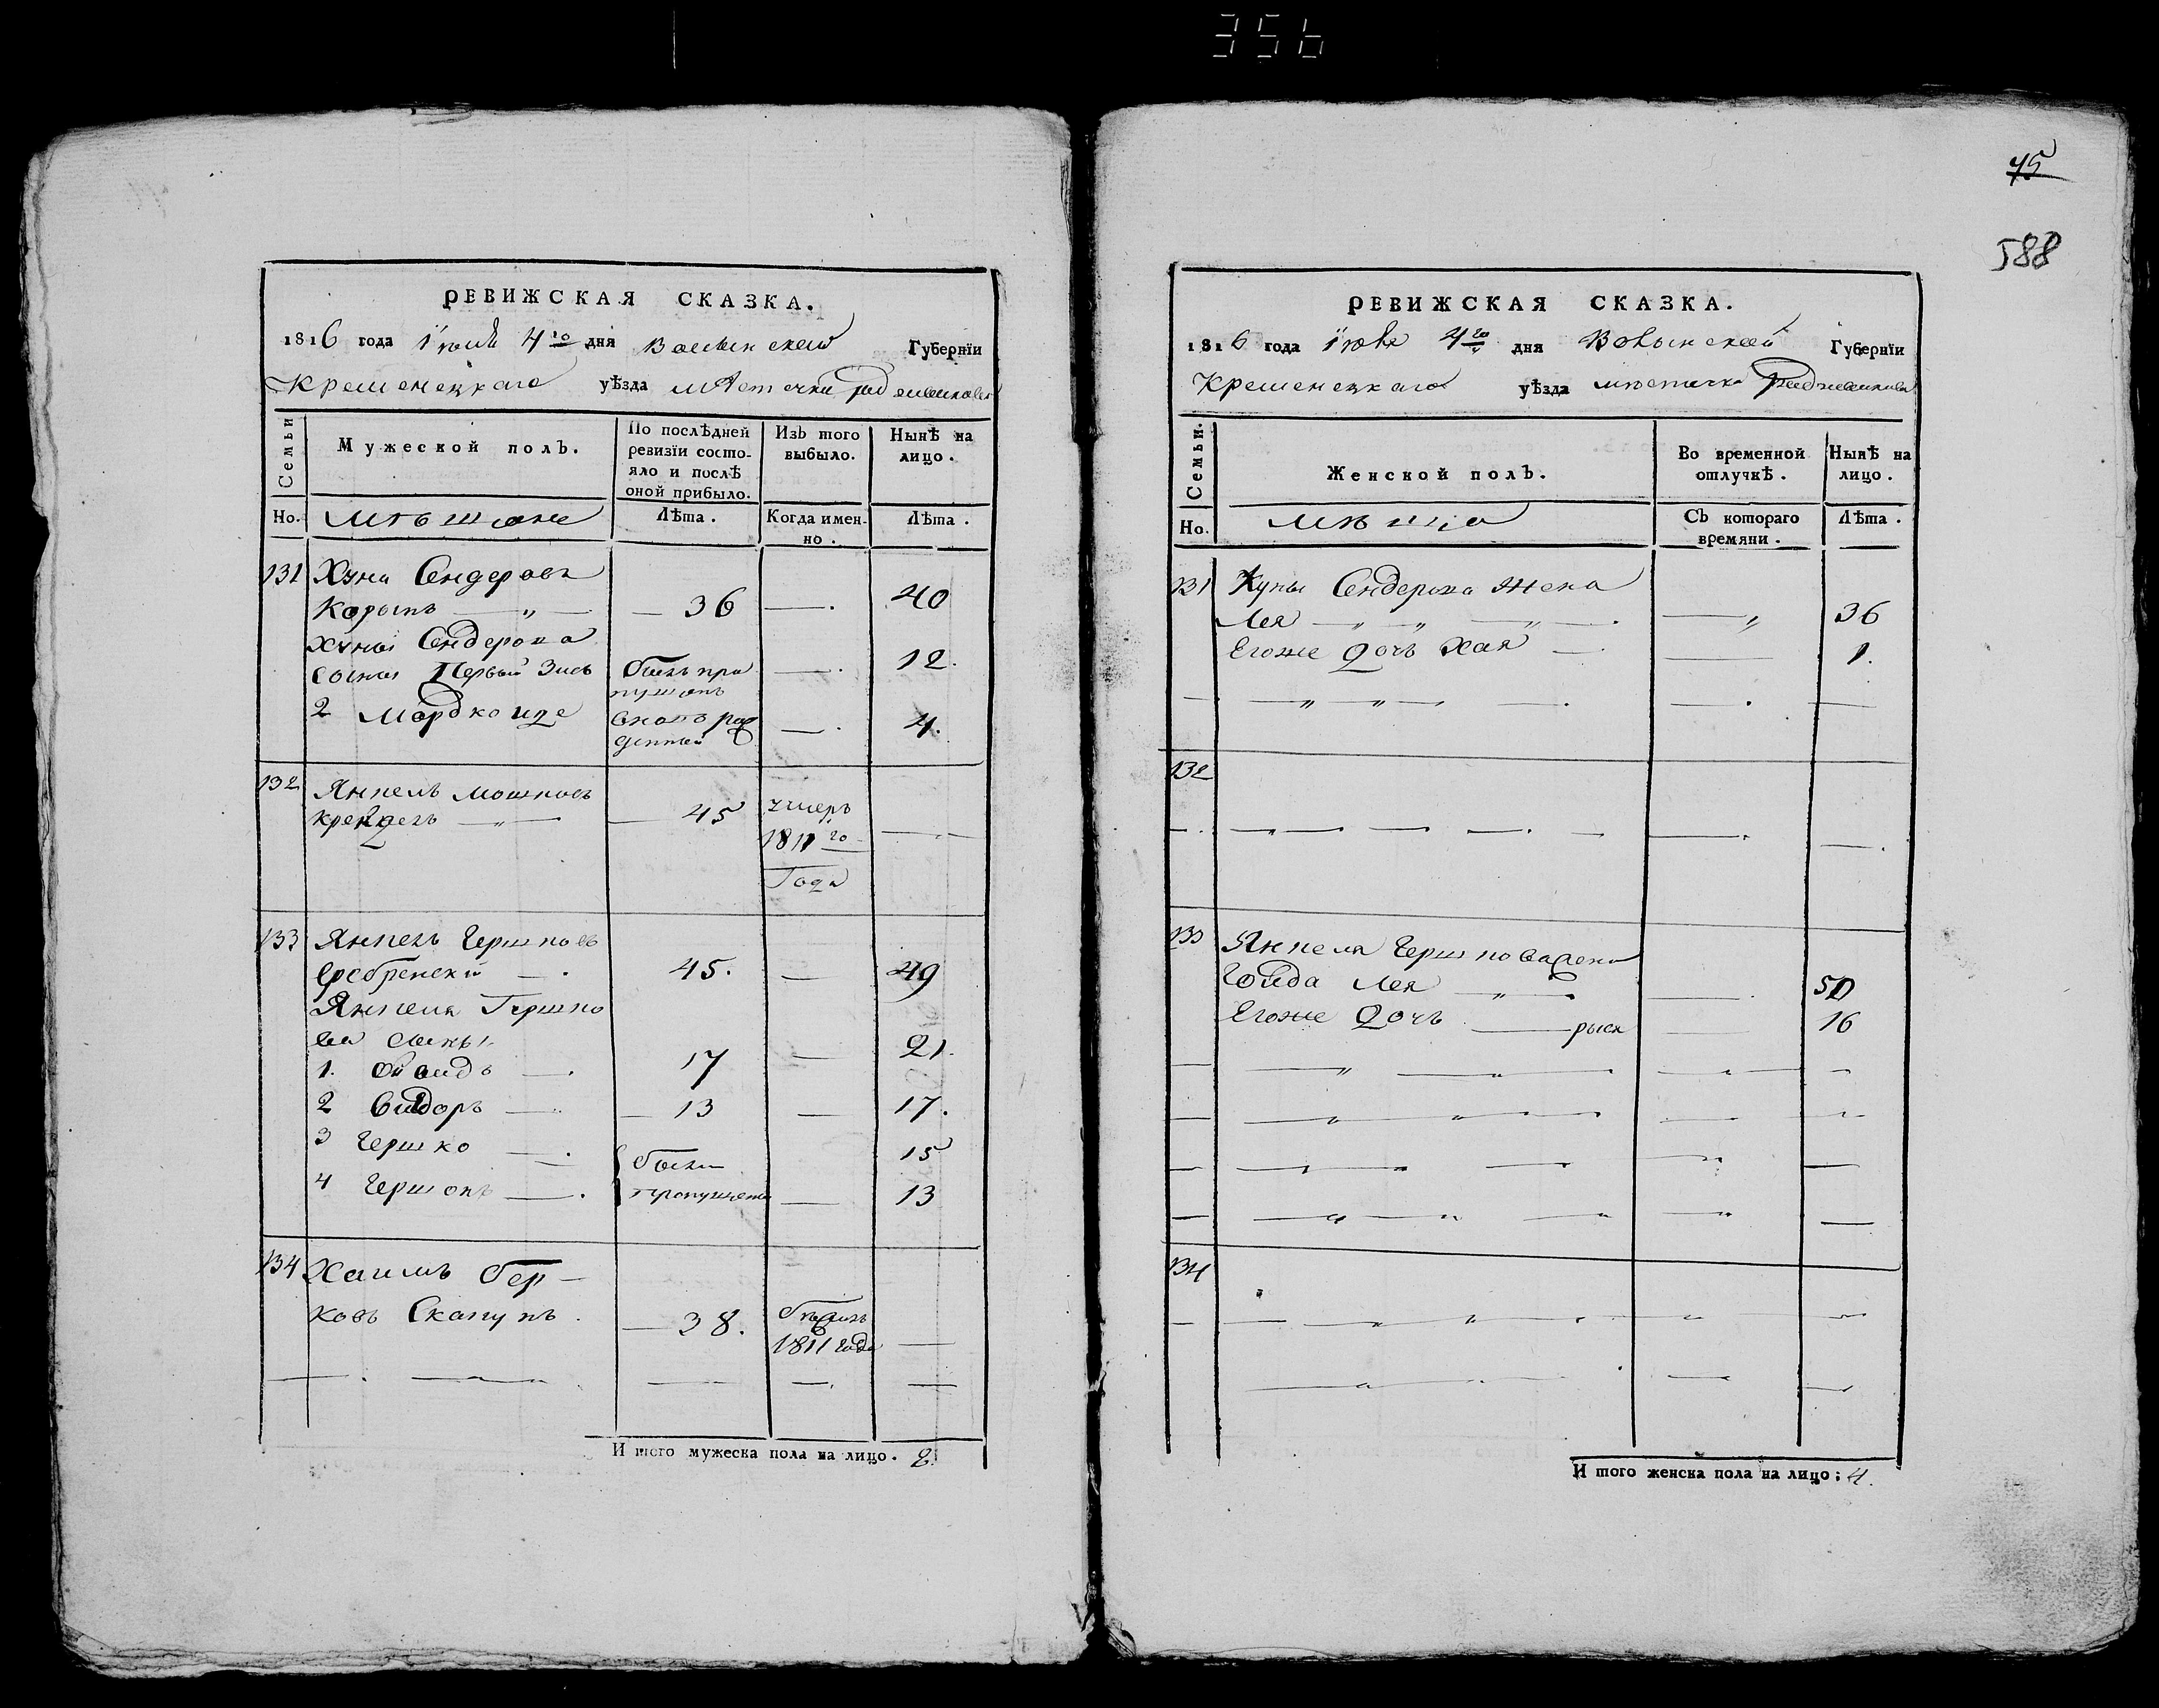 356
РЕВИЖСКАЯ СКАЗКА.
1816 года Июля 4го дня Волынской Губернїи
Кременецкаго уѣзда мѣстечка Радзивилова
Семьи
Мужеской полъ.
По послѣдней ревизїи состо-
яло и послѣ
оной прибыло.
Изъ того выбыло.
Нынѣ на лицо.
Но. мѣщане
Лѣта.
Когда имен-
но.
Лѣта.
131 Хуна Сендеровъ
— 36 —. 40
Хуны Сендерова
сыны Первый Зись былъ пропущенъ —. 12.
2 Мордко
вновь рож
денный —. 4.
132 Янкель Мошковъ
— 45 умеръ
1811го
Года
133 Янкель Гершковъ
Сребренскїй —. 45. — 49
Янкеля Гершко
ва сыны
1. — 17 — 21.
2 — 13 — 17.
3 Гершко —. 15
4 Гершонъ —. были
пропущены — 13
134 Хаимъ Бер-
ковъ Скапунъ — 38. бѣжалъ
1811 года —
И того мужеска пола на лицо. 8
75
588
РЕВИЖСКАЯ СКАЗКА.
1816 года Июля 4го дня Волынской Губернїи
Кременецкаго уѣзда мѣстечка Радзивилова
Семьи.
Женской полъ.
Во временной
отлучкѣ.
Нынѣ на
лицо.
Но.
Съ котораго
времяни.
Лѣта.
131 Хуны Сендерова жена
Лея — 36
Егоже дочь Хая — 1.
132
133 Янкеля Гершкова жена
Лея — 50
Егоже дочь — 16
134
И того женска пола на лицо; 4.